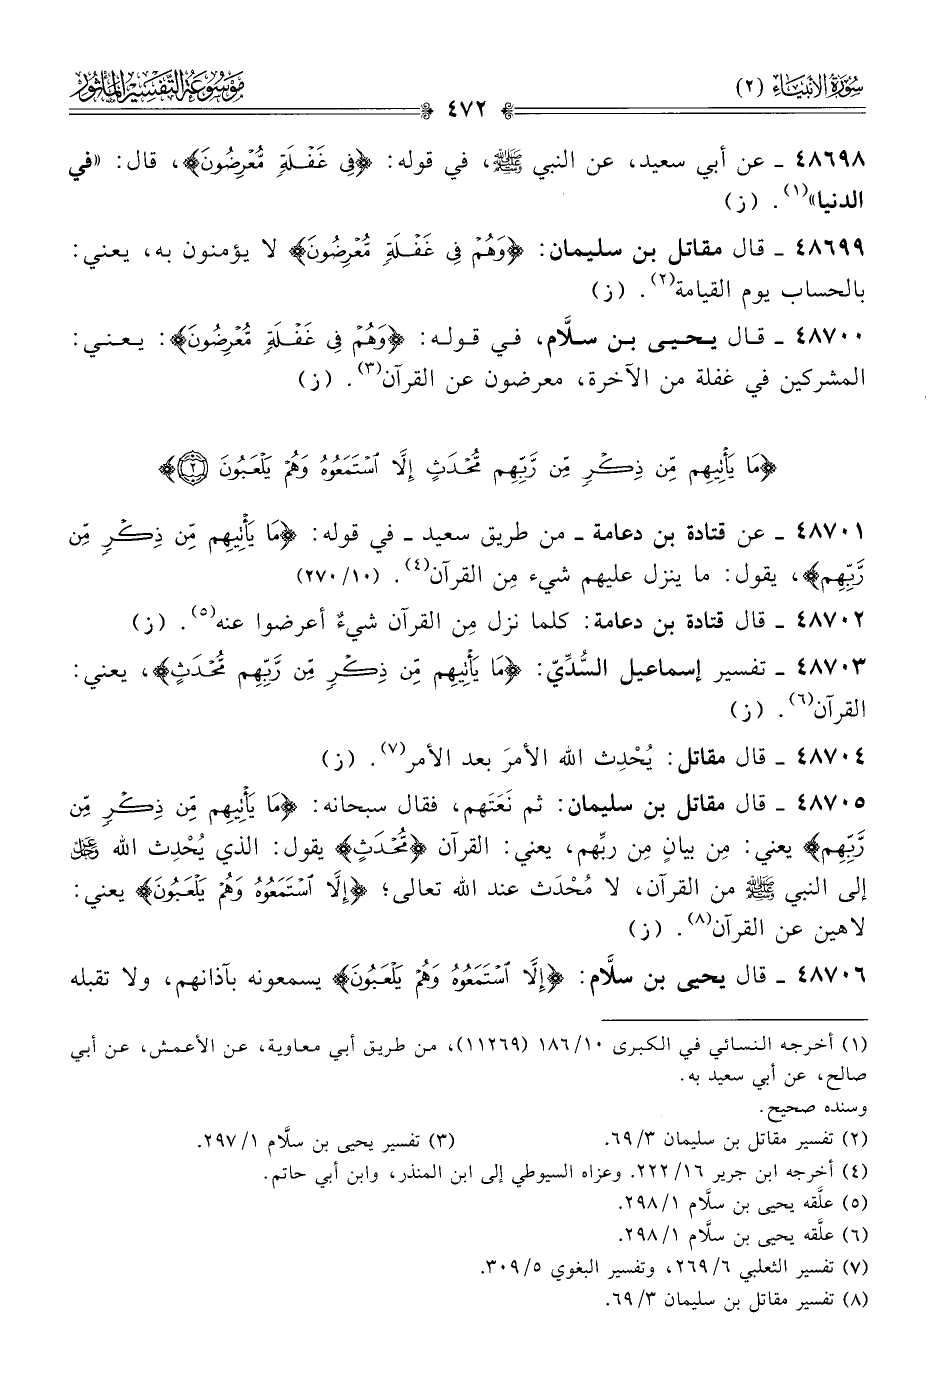 سُورَةُ الأَنْبِيَاءِ (٢)
٤٧٢
مَوْسُوعَةُ التَّفْسِيرِ المَأْثُورِ
٤٨٦٩٨ ـ عن أبي سعيد، عن النبي ﷺ، في قوله: ﴿فِي غَفْلَةٍ مُّعْرِضُونَ﴾، قال: «في
الدنيا»(١). (ز)
٤٨٦٩٩ ـ قال مقاتل بن سليمان: ﴿وَهُمْ فِي غَفْلَةٍ مُّعْرِضُونَ﴾ لا يؤمنون به، يعني:
بالحساب يوم القيامة(٢). (ز)
٤٨٧٠٠ ـ قال يحيى بن سلَّام، في قوله: ﴿وَهُمْ فِي غَفْلَةٍ مُّعْرِضُونَ﴾: يعني:
المشركين في غفلة من الآخرة، معرضون عن القرآن(٣). (ز)
﴿مَا يَأْتِيهِم مِّن ذِكْرٍ مِّن رَّبِّهِم مُّحْدَثٍ إِلَّا ٱسْتَمَعُوهُ وَهُمْ يَلْعَبُونَ ٢﴾
٤٨٧٠١ ـ عن قتادة بن دعامة ـ من طريق سعيد ـ في قوله: ﴿مَا يَأْتِيهِم مِّن ذِكْرٍ مِّن
رَّبِّهِم﴾، يقول: ما ينزل عليهم شيء مِن القرآن(٤). (١٠/ ٢٧٠)
٤٨٧٠٢ ـ قال قتادة بن دعامة: كلما نزل مِن القرآن شيءٌ أعرضوا عنه(٥). (ز)
٤٨٧٠٣ ـ تفسير إسماعيل السُّدِّيّ: ﴿مَا يَأْتِيهِم مِّن ذِكْرٍ مِّن رَّبِّهِم مُّحْدَثٍ﴾، يعني:
القرآن(٦). (ز)
٤٨٧٠٤ ـ قال مقاتل: يُحْدِث الله الأمرَ بعد الأمر(٧). (ز)
٤٨٧٠٥ ـ قال مقاتل بن سليمان: ثم نَعَتَهم، فقال سبحانه: ﴿مَا يَأْتِيهِم مِّن ذِكْرٍ مِّن
رَّبِّهِم﴾ يعني: مِن بيانٍ مِن ربِّهم، يعني: القرآن ﴿مُّحْدَثٍ﴾ يقول: الذي يُحْدِث الله ﷿
إلى النبي ﷺ من القرآن، لا مُحْدَث عند الله تعالى؛ ﴿إِلَّا ٱسْتَمَعُوهُ وَهُمْ يَلْعَبُونَ﴾ يعني:
لاهين عن القرآن(٨). (ز)
٤٨٧٠٦ ـ قال يحيى بن سلَّام: ﴿إِلَّا ٱسْتَمَعُوهُ وَهُمْ يَلْعَبُونَ﴾ يسمعونه بآذانهم، ولا تقبله
(١) أخرجه النسائي في الكبرى ١٠/ ١٨٦ (١١٢٦٩)، من طريق أبي معاوية، عن الأعمش، عن أبي
صالح، عن أبي سعيد به.
وسنده صحيح.
(٢) تفسير مقاتل بن سليمان ٣/ ٦٩. (٣) تفسير يحيى بن سلَّام ١/ ٢٩٧.
(٤) أخرجه ابن جرير ١٦/ ٢٢٢. وعزاه السيوطي إلى ابن المنذر، وابن أبي حاتم.
(٥) علَّقه يحيى بن سلَّام ١/ ٢٩٨.
(٦) علَّقه يحيى بن سلَّام ١/ ٢٩٨.
(٧) تفسير الثعلبي ٦/ ٢٦٩، وتفسير البغوي ٥/ ٣٠٩.
(٨) تفسير مقاتل بن سليمان ٣/ ٦٩.